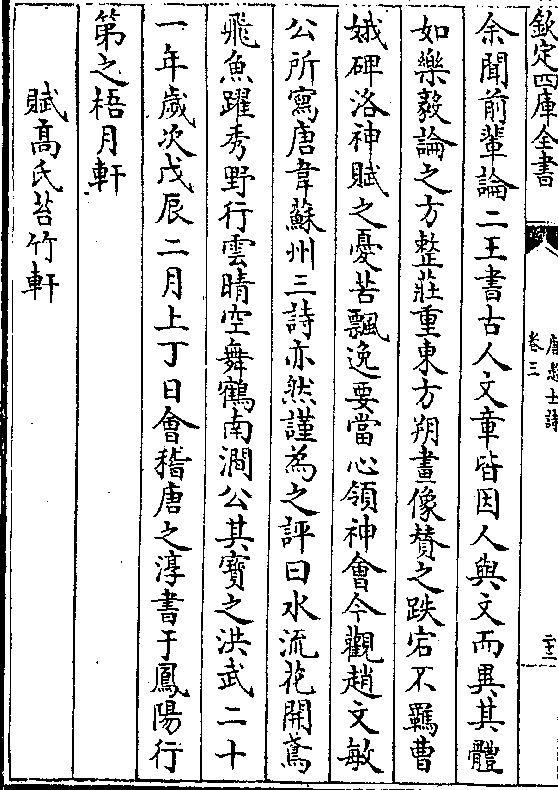 欽定四庫全書
唐愚士詩
卷三
二十二
余聞前輩論二王書古人文章皆因人與文而異其體
如樂毅論之方整莊重東方朔畫像贊之跌宕不羈曹
娥碑洛神賦之憂苦飄逸要當心領神會今觀趙文敏
公所寫唐韋蘇州三詩亦然謹為之評曰水流花開鳶
飛魚躍秀野行雲晴空舞鶴南澗公其寶之洪武二十
一年歲次戊辰二月上丁日會稽唐之淳書于鳳陽行
第之梧月軒
賦高氏苔竹軒